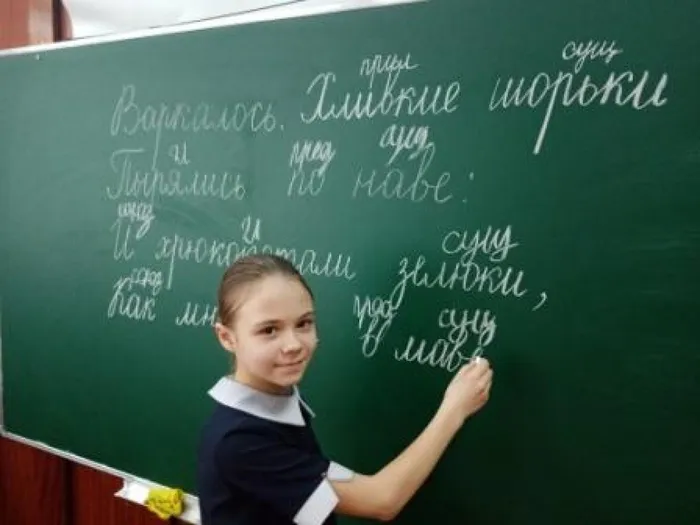 прил сущ
Варкалось. Хливкие шорьки
пред сущ
Пырялись по наве:
союз сущ
И хрюкотали зелюки,
союз пред сущ
Как в маве